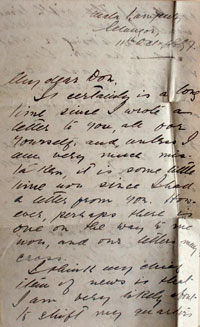 Selangor,
My dear Don,
It certainly is a long
time since I wrote a
letter to you, all for
yourself, and unless I
am very much mis-
taken, it is some little
time now since I had
a letter from you. How-
ever, perhaps there is
one on the way to me
now, and our letters may
cross.
I think my chief
item of news is that
I am very likely about
to shift my quarters